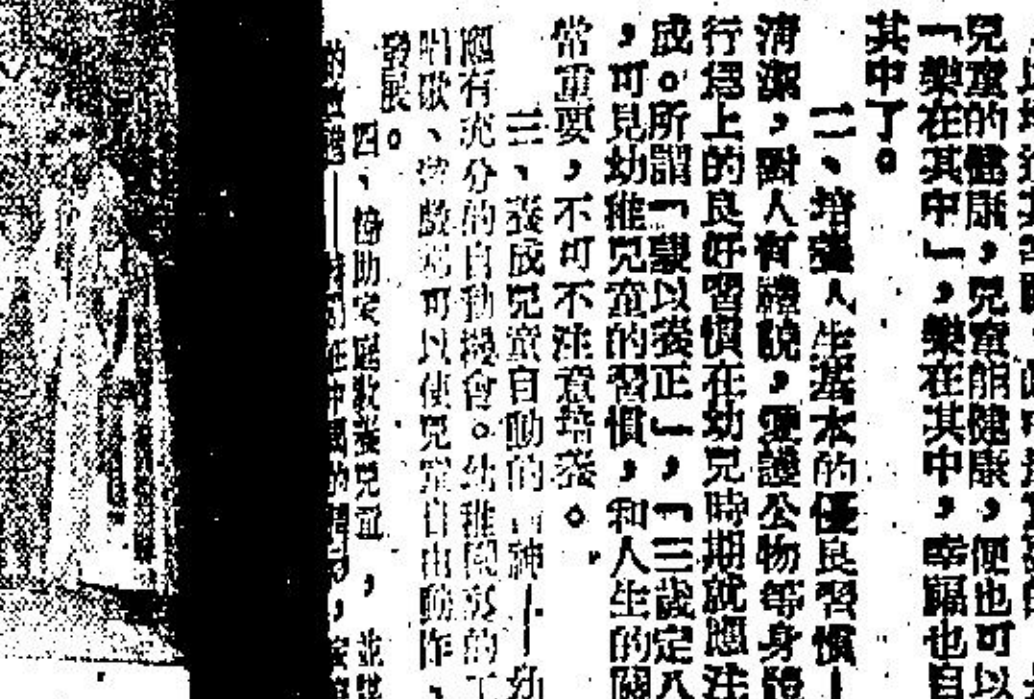 兒童的健康，兒童能健康，便也可以
「樂在其中」，樂在其中，幸福也自
其中了。
二、培養人生基本的優良習慣—
清潔，對人有禮貌，愛護公物等身體
行爲上的良好習慣在幼兒時期就應注
成。所謂「蒙以養正」，「三歲定八
，可見幼稚兒童的習慣，和人生的關
常重要，不可不注意培養。
三、養成兒童自動的精神—幼
應有充分的自動機會。幼稚園裏的工
唱歌、遊戲 可以使兒童自由動作、
發展。
四、協助家庭教養兒童，並謀